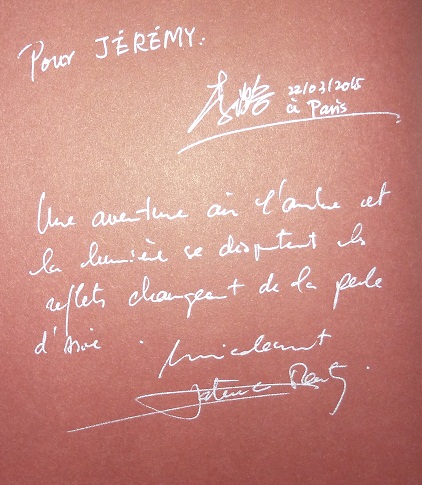 Pour JÉRÉMY:
22/03/2015
à Paris
Une aventure où l'ombre et
la lumière se disputent les
reflets changeant de la perle
d'Asie.
Amicalement